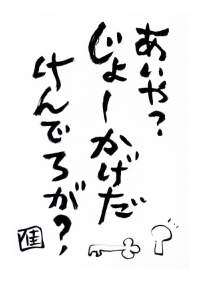 あいや?
じょーかげだ
けんでろが?
佳